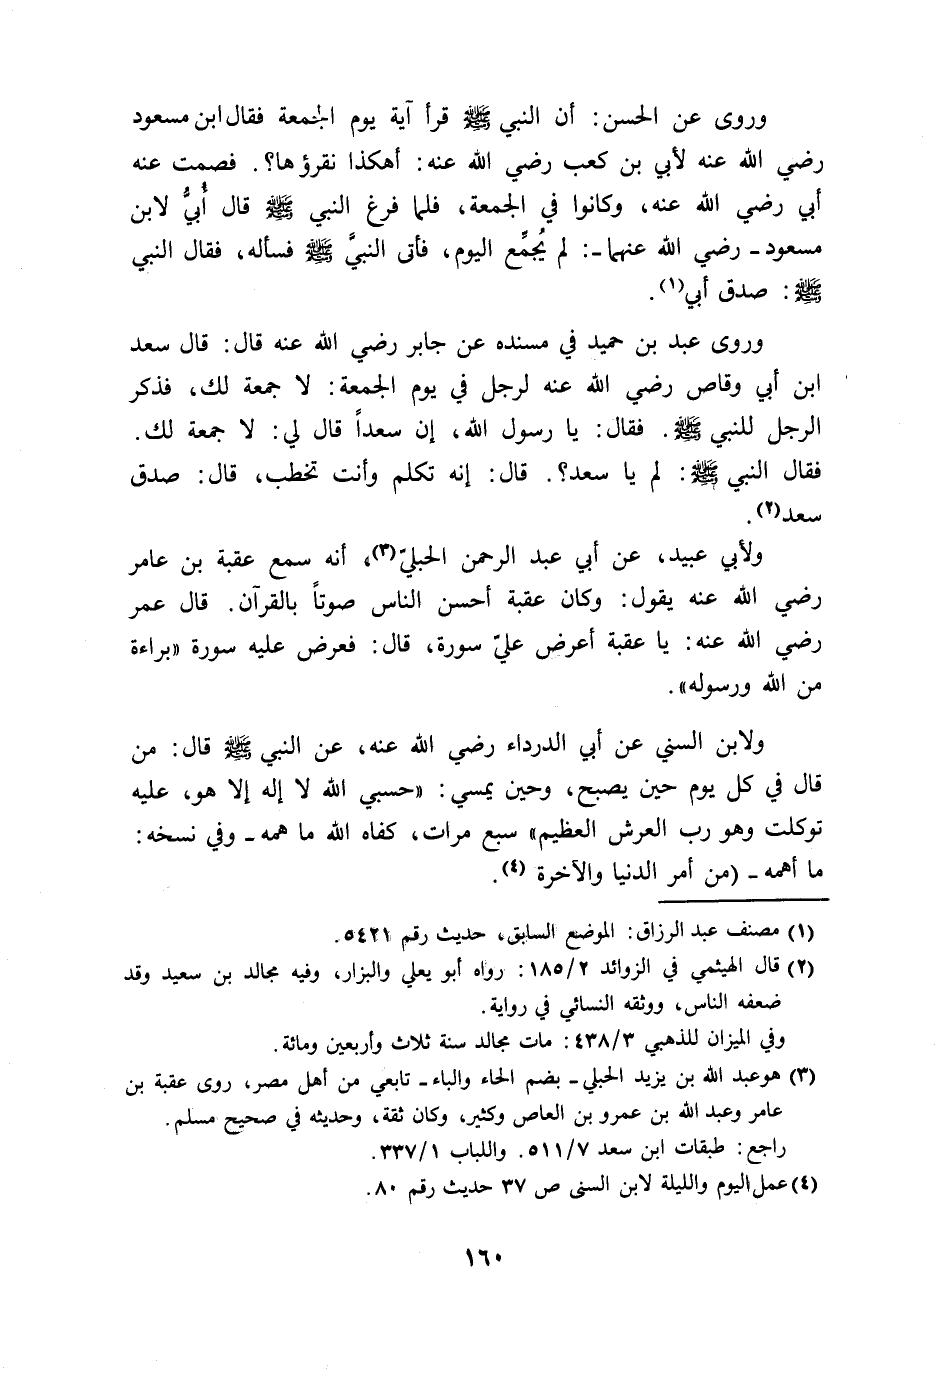 وروى عن الحسن: أن النبي ﷺ قرأ آية يوم الجمعة فقال ابن مسعود
رضي الله عنه لأبي بن كعب رضي الله عنه: أهكذا نقرؤها؟. فصمت عنه
أبي رضي الله عنه، وكانوا في الجمعة، فلما فرغ النبي ﷺ قال أُبيُّ لابن
مسعود ـ رضي الله عنهما ـ: لم يُجمِّع اليوم، فأتى النبيَّ ﷺ فسأله، فقال النبي
ﷺ: صدق أبي(١).
وروى عبد بن حميد في مسنده عن جابر رضي الله عنه قال: قال سعد
ابن أبي وقاص رضي الله عنه لرجل في يوم الجمعة: لا جمعة لك، فذكر
الرجل للنبي ﷺ. فقال: يا رسول الله، إن سعداً قال لي: لا جمعة لك.
فقال النبي ﷺ: لم يا سعد؟. قال: إنه تكلم وأنت تخطب، قال: صدق
سعد(٢).
ولأبي عبيد، عن أبي عبد الرحمن الحبليّ(٣)، أنه سمع عقبة بن عامر
رضي الله عنه يقول: وكان عقبة أحسن الناس صوتاً بالقرآن. قال عمر
رضي الله عنه: يا عقبة أعرض عليّ سورة، قال: فعرض عليه سورة «براءة
من الله ورسوله».
ولابن السني عن أبي الدرداء رضي الله عنه، عن النبي ﷺ قال: من
قال في كل يوم حين يصبح، وحين يمسي: «حسبي الله لا إله إلا هو، عليه
توكلت وهو رب العرش العظيم» سبع مرات، كفاه الله ما همه ـ وفي نسخه:
ما أهمه ـ (من أمر الدنيا والآخرة (٤).
(١) مصنف عبد الرزاق: الموضع السابق، حديث رقم ٥٤٢١.
(٢) قال الهيثمي في الزوائد ١٨٥/٢: رواه أبو يعلي والبزار، وفيه مجالد بن سعيد وقد
ضعفه الناس، ووثقه النسائي في رواية.
وفي الميزان للذهبي ٤٣٨/٣: مات مجالد سنة ثلاث وأربعين ومائة.
(٣) هو عبد الله بن يزيد الحبلي ـ بضم الحاء والباء ـ تابعي من أهل مصر، روى عقبة بن
عامر وعبد الله بن عمرو بن العاص وكثير، وكان ثقة، وحديثه في صحيح مسلم.
راجع: طبقات ابن سعد ٥١١/٧. واللباب ٣٣٧/١.
(٤) عمل اليوم والليلة لابن السنى ص ٣٧ حديث رقم ٨٠.
١٦٠